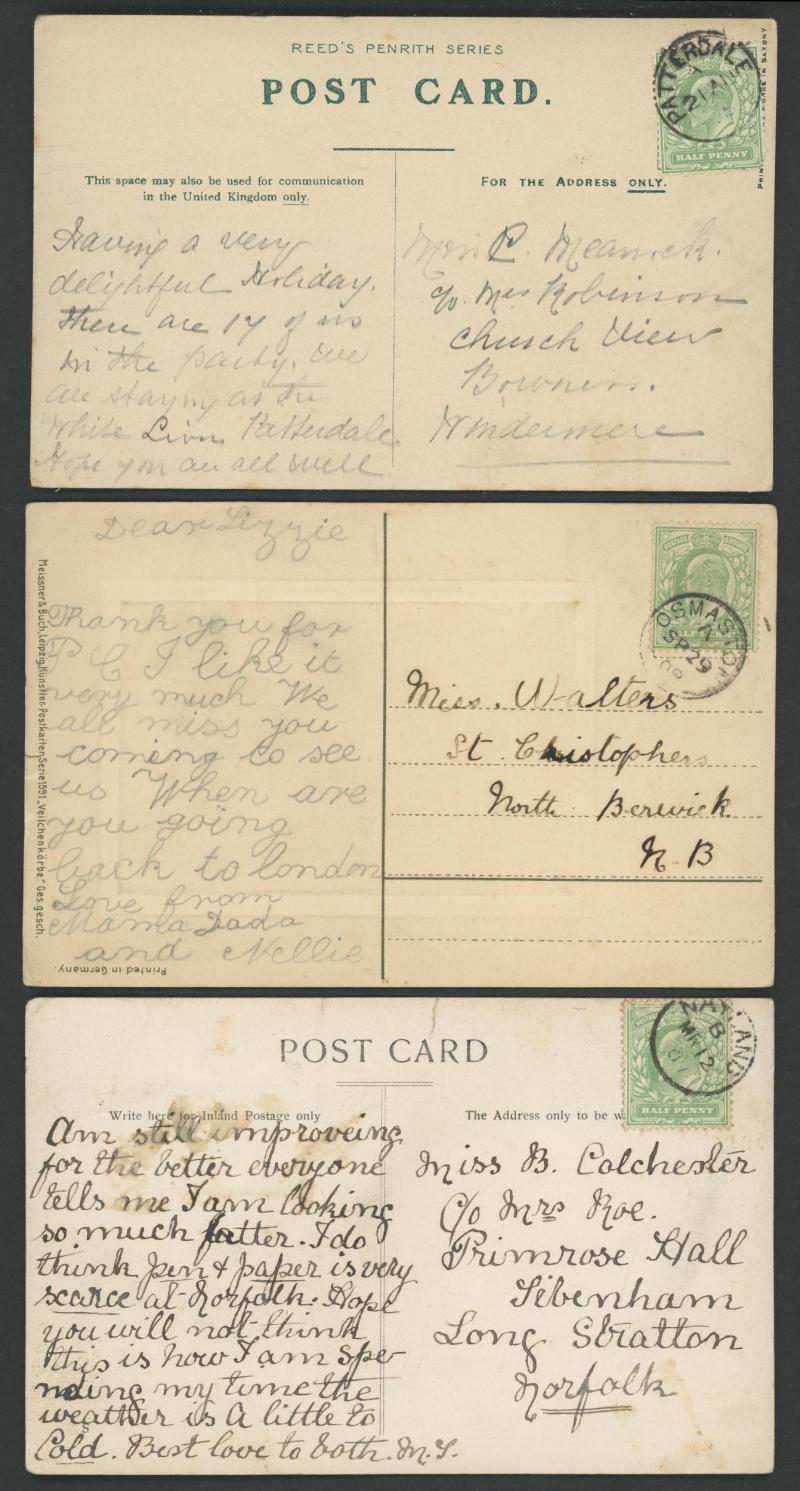 REED'S PENRITH SERIES
POST CARD.
This space may also be used for communication
in the United Kingdom only.
FOR THE ADDRESS ONLY.
PATTERDALE
A
21 AU
HALF PENNY
IN SAXONY
Having a very
delightful Holiday.
there are 14 of us
in the party. We
are staying at the
White Lion Patterdale.
Hope you are all well
Miss P.
c/o Mrs Robinson
Church View
Bowness.
Windermere
Dear Lizzie
Thank you for
P C I like it
very much We
all miss you
coming to see
us When are
you going
back to london
Love from
Mama Dada
and Nellie
Meissner & Buch, Leipzig, Künstler-Postkarten, Serie 1591 „Veilchenkörbe." Ges. gesch.
Printed in Germany.
OSMASTON
A
SP 29
09
Miss. Walters
St. Christophers
North Berwick
N. B
POST CARD
Write here for Inland Postage only
The Address only to be w
NATLAND
B
MR 12
07
HALF PENNY
Am still improveing
for the better everyone
tells me I am looking
so much fatter. I do
think pen & paper is very
scarce at Norfolk. Hope
you will not think
this is how I am spe-
nding my time the
weather is a little to
Cold. Best love to both. M.S.
Miss B. Colchester
c/o Mrs Roe.
Primrose Hall
Tibenham
Long Stratton
Norfolk